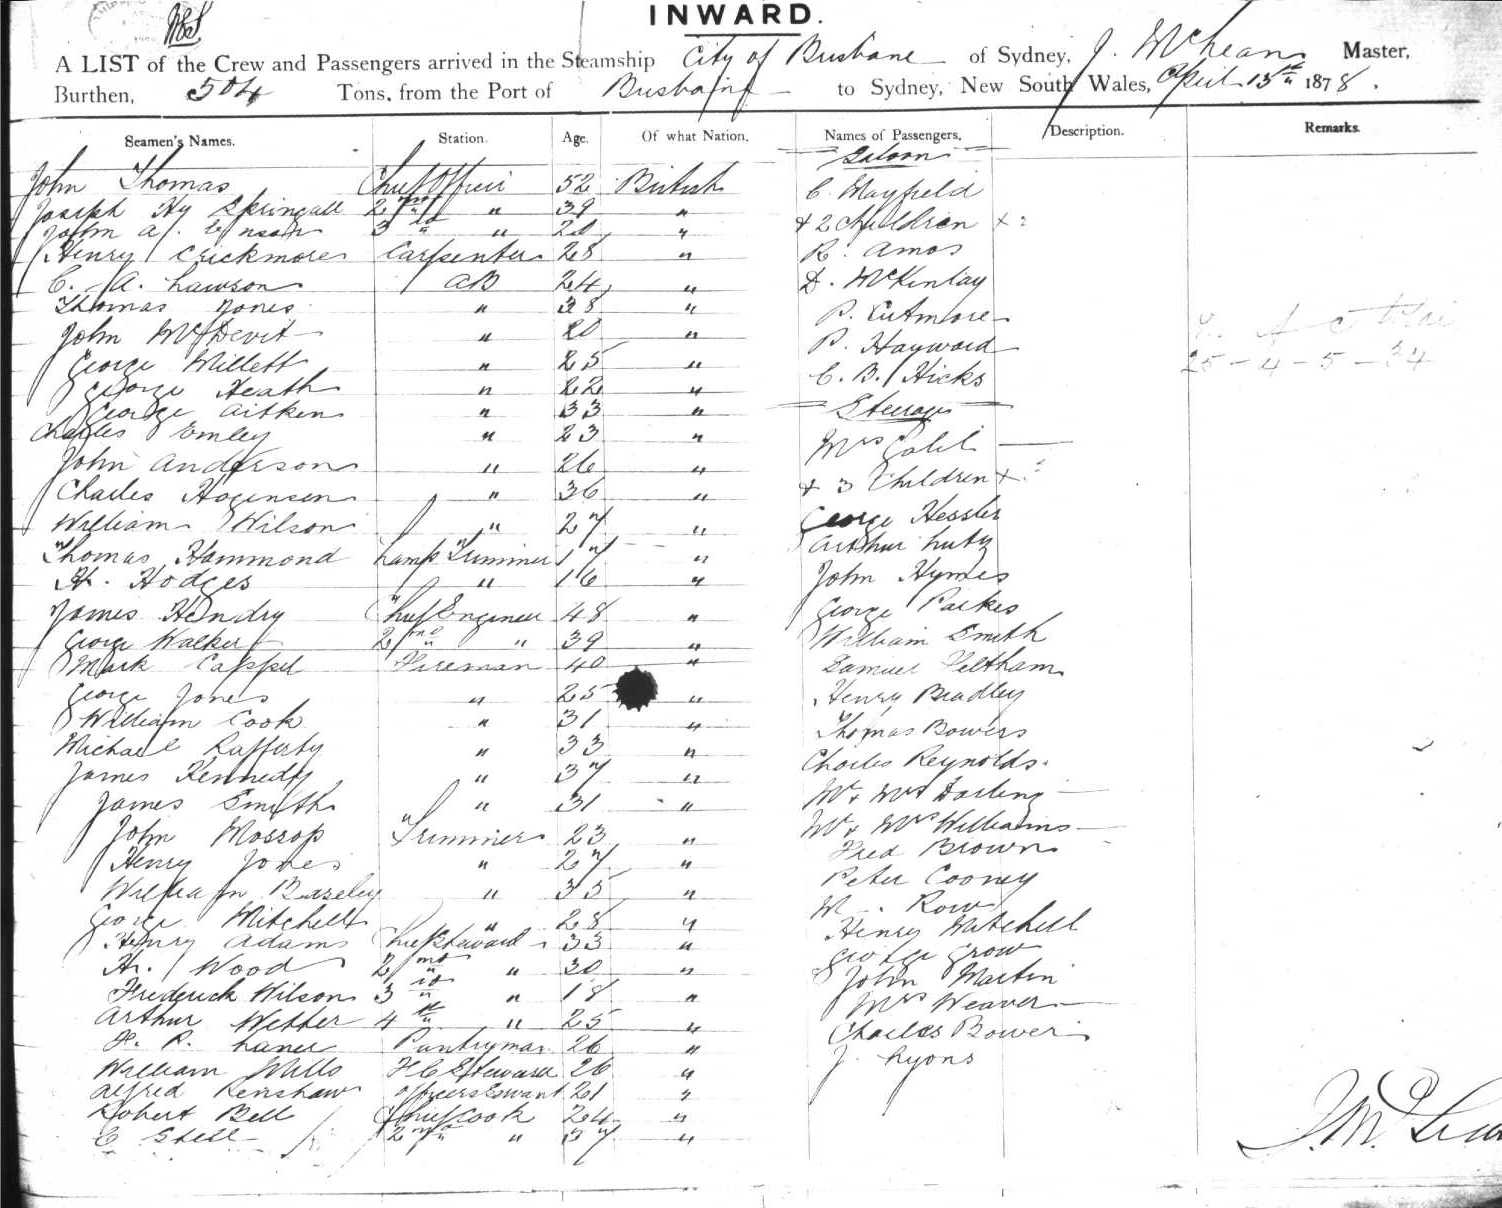 INWARD.
A LIST of the Crew and Passengers arrived in the Steamship City of Brisbane of Sydney, J. McLean Master,
Burthen, 504 Tons, from the Port of Brisbane to Sydney, New South Wales, April 13th 1878.
Seamen's Names. Station. Age. Of what Nation. Names of Passengers. Description. Remarks.
Saloon
John Thomas Chief Officer 52 British C. Mayfield
Joseph Hy Springall 2nd " 39 " + 2 Children x
John A. 3rd " 20 "
Henry Crickmore Carpenter 28 " R. Amos
C. A. Lawson AB 24 " D. McKinlay
Thomas Jones " 38 " P. Cutmore
John McDevit " 20 " P. Hayward
George Millett " 25 " C. B. Hicks
25-4-5-34
George Heath " 22 "
George Aitken " 33 " Steerage
Charles Emley " 23 " Mrs
John Anderson " 26 "
Charles Hogensen " 36 " + 3 Children x
William Wilson " 27 " George Hessler
Thomas Hammond Lamp Trimmer 17 " Arthur Lutz
H. Hodges " 16 " John Hymes
James Hendry Chief Engineer 48 " George Parkes
George Walker 2nd " 39 " William Smith
Mark Cappel Fireman 40 " Samuel Feltham
George Jones " 25 " Henry Bradley
William Cook " 31 " Thomas Bowers
Michael Rafferty " 33 " Charles Reynolds.
James Kennedy " 37 " Mr & Mrs Darling
James Smith " 31 " Mr & Mrs Williams
John Mossop Trimmer 23 " Fred Brown
Henry Jones " 27 " Peter Cooney
William Bazeley " 35 " Row
George Mitchell " 28 " Henry Watchell
Henry Adams Chief Steward 33 " George Grow
Hr. Wood 2nd " 30 " John Martin
Frederick Wilson 3rd " 18 " Mrs Weaver
Arthur Webber 4th " 25 " Charles Bower
H. P. Laner Pantryman 26 " J. Lyons
William Mills F C Steward 26 "
Alfred Renshaw Officers Servant 21 "
Robert Bell Chief Cook 24 "
C Stell 2nd " 37 "
J. McLean